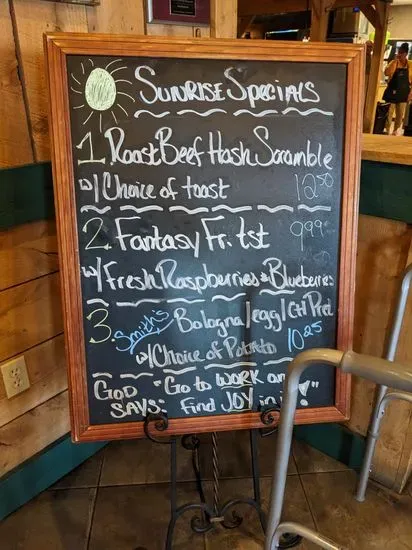 Sunrise Specials
1. Roast Beef Hash Scramble
w/ Choice of toast 12.50
2. Fantasy Fr. tst 9.99
w/ Fresh Raspberries & Blueberries
3. Smith's Bologna/egg/
w/ Choice of Potato 10.25
God "Go to work and
Says: Find JOY in it!"